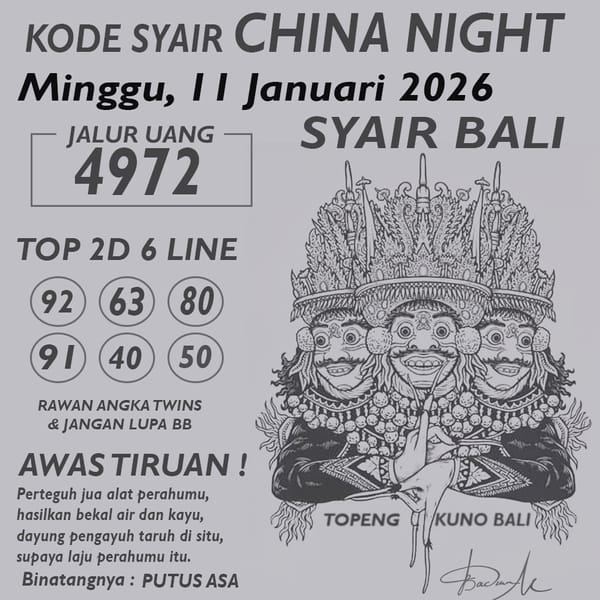 KODE SYAIR CHINA NIGHT
Minggu, 11 Januari 2026
JALUR UANG
4972
SYAIR BALI
TOP 2D 6 LINE
92 63 80
91 40 50
RAWAN ANGKA TWINS
& JANGAN LUPA BB
AWAS TIRUAN !
Perteguh jua alat perahumu,
hasilkan bekal air dan kayu,
dayung pengayuh taruh di situ,
supaya laju perahumu itu.
Binatangnya : PUTUS ASA
TOPENG KUNO BALI